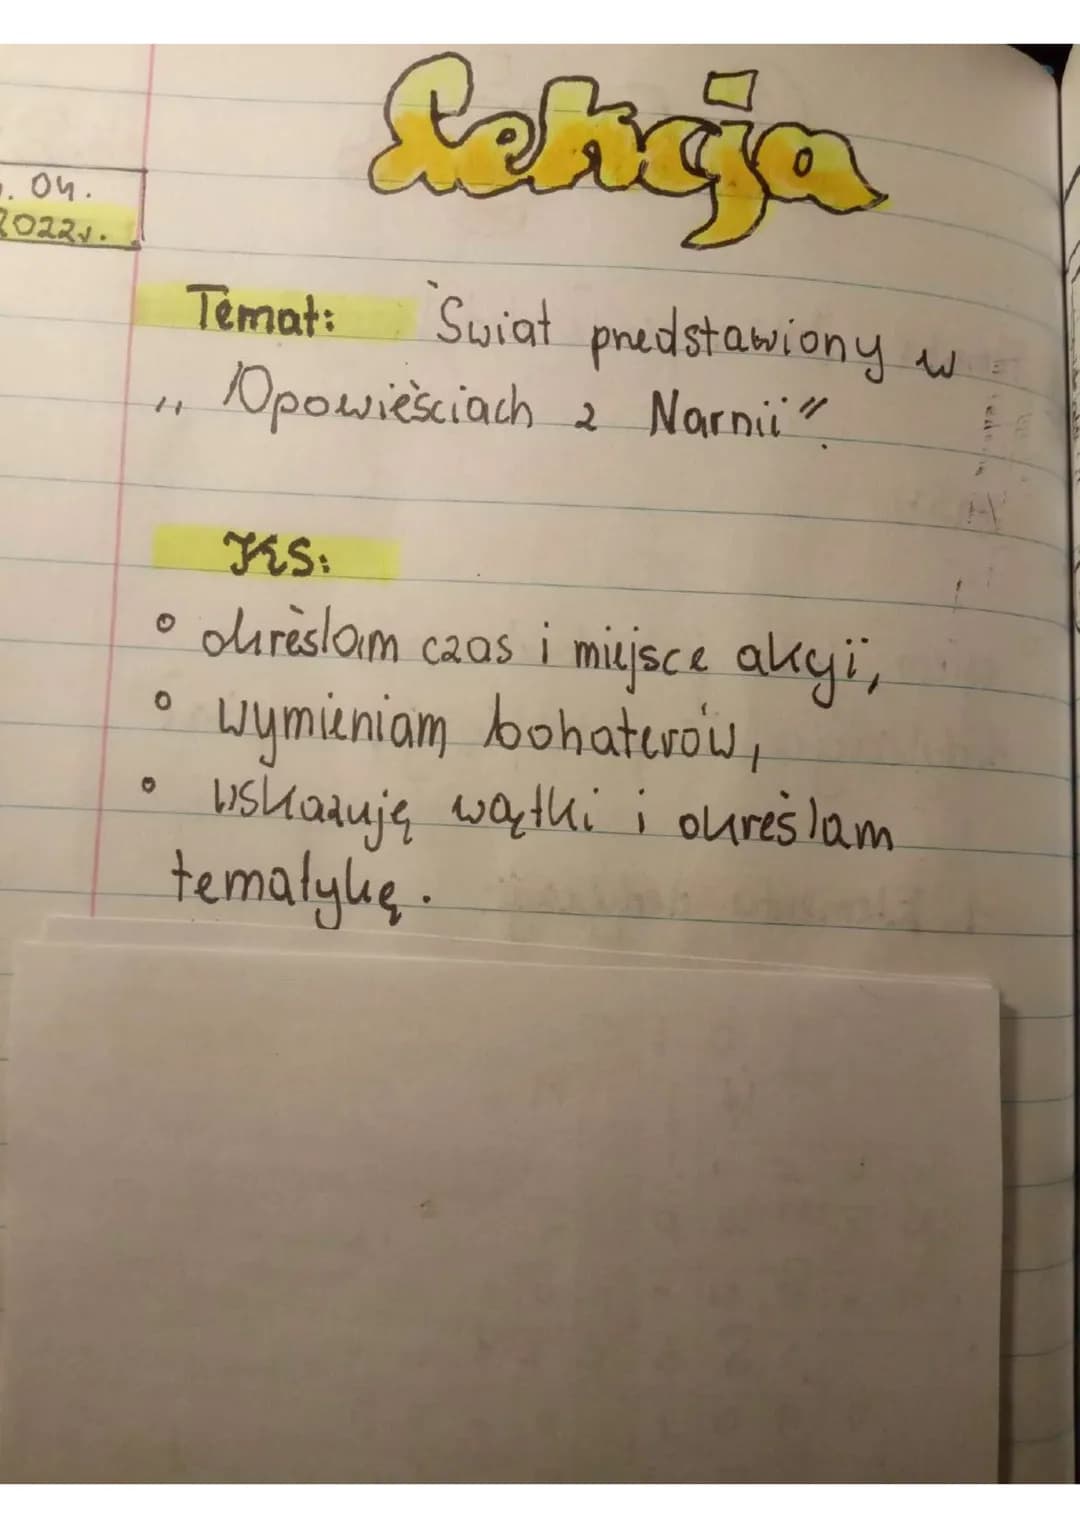 Lekcja
. 04.
2022r.
Temat: Świat przedstawiony w
„Opowieściach z Narnii".
KS:
° określam czas i miejsce akcji,
° wymieniam bohaterów,
° wskazuję wątki i określam
tematykę.